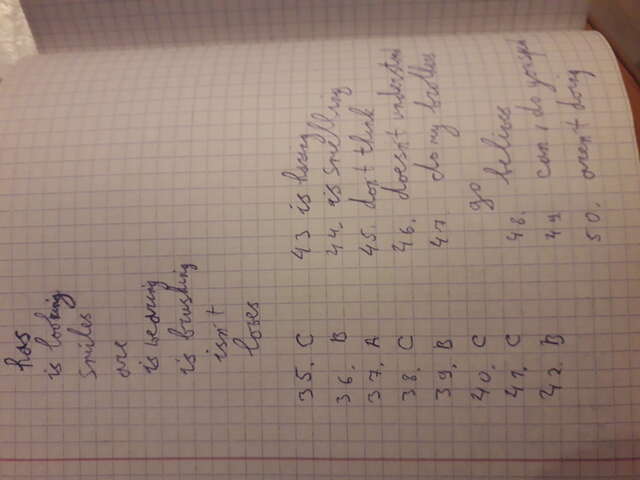 has
is looking
smiles
are
is wearing
is brushing
isn't
loves
35. C
36. B
37. A
38. C
39. B
40. C
41. C
42. B
43 is having
44. is smelling
45. don't think
46. doesn't understand
47. do my brothers
go
48. belives
49 can, do you speak
50. aren't doing